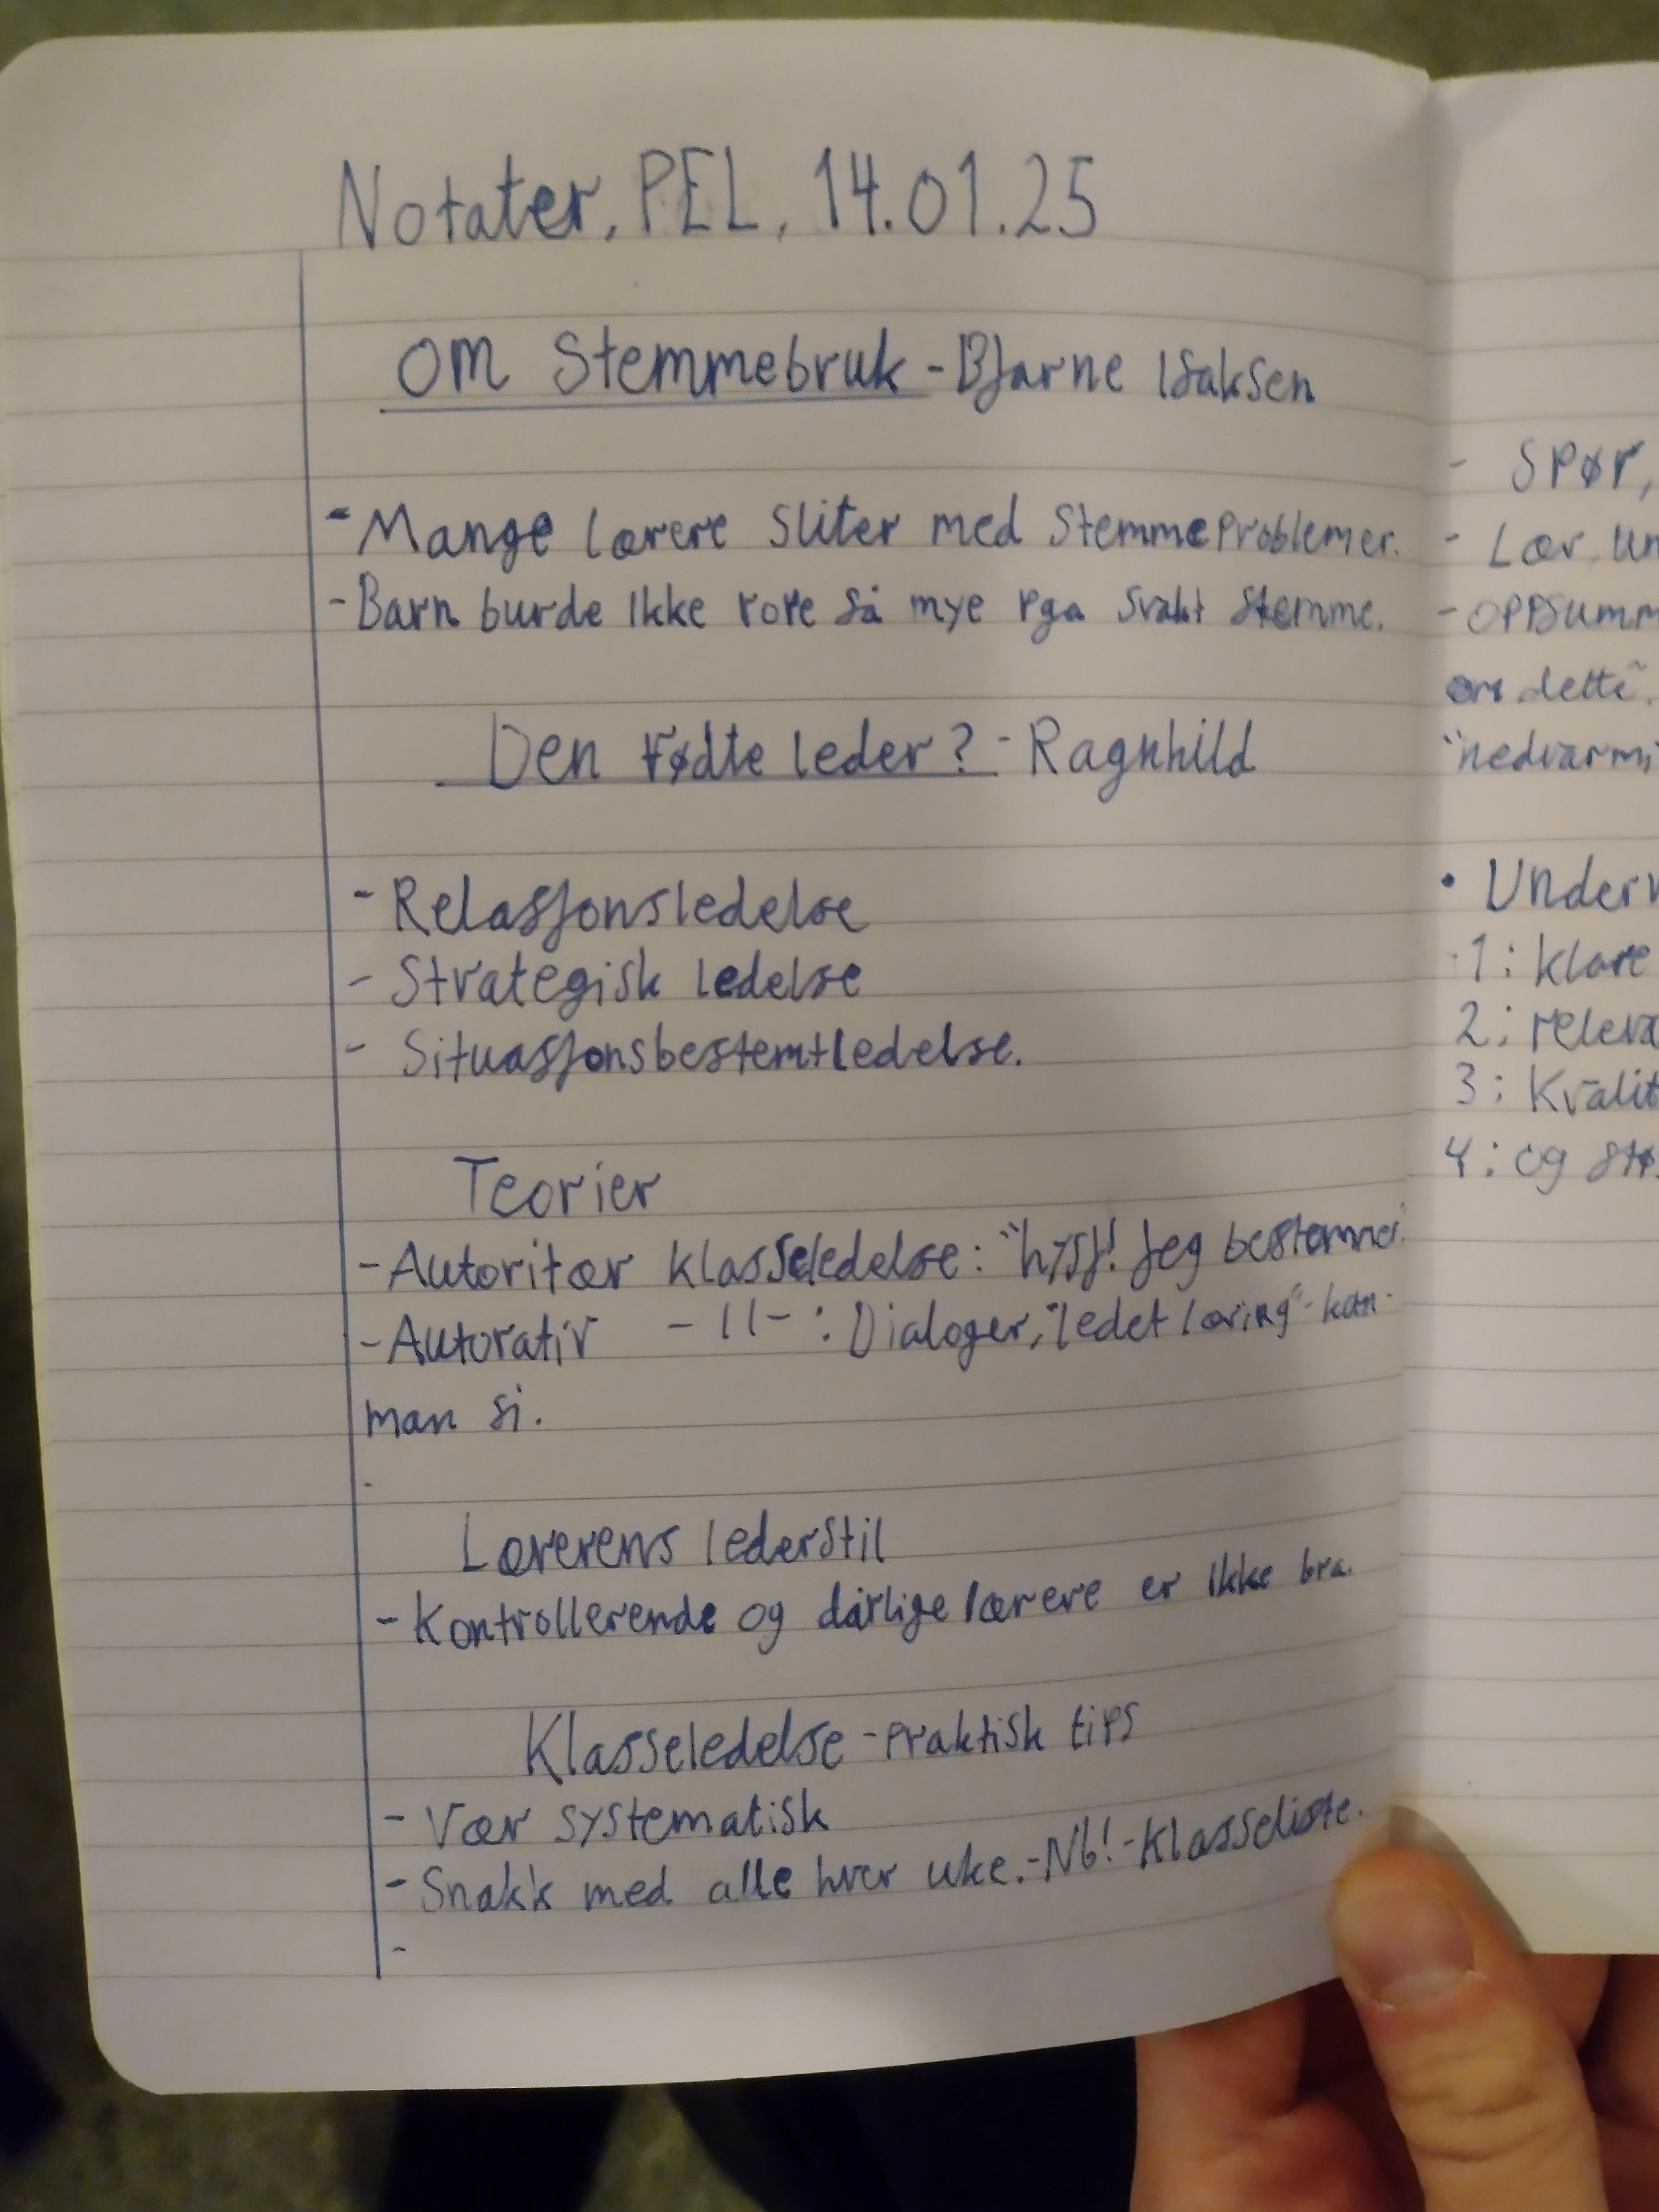 Notater, PEL, 14.01.25
Om Stemmebruk - Bjarne Isaksen
- Mange lærere sliter med stemmeproblemer.
- Barn burde ikke rope så mye pga svakt stemme.
Den fødte leder? - Ragnhild
- Relasjonsledelse
- Strategisk ledelse
- Situasjonsbestemtledelse.
Teorier
- Autoritær klasseledelse: "hysj! Jeg bestemmer.
- Autorativ -11- : Dialoger, "ledet læring" - kan
man si.
Lærerens lederstil
- Kontrollerende og dårlige lærere er ikke bra.
Klasseledelse - praktisk tips
- Vær systematisk
- Snakk med alle hver uke. - Nb! - Klasseliste.
-
- Spør,
- Lær. un
- oppsumm
om dette".
"nedvarmi
• Underv
1: klare
2: releva
3: Kvalit
4: og stø